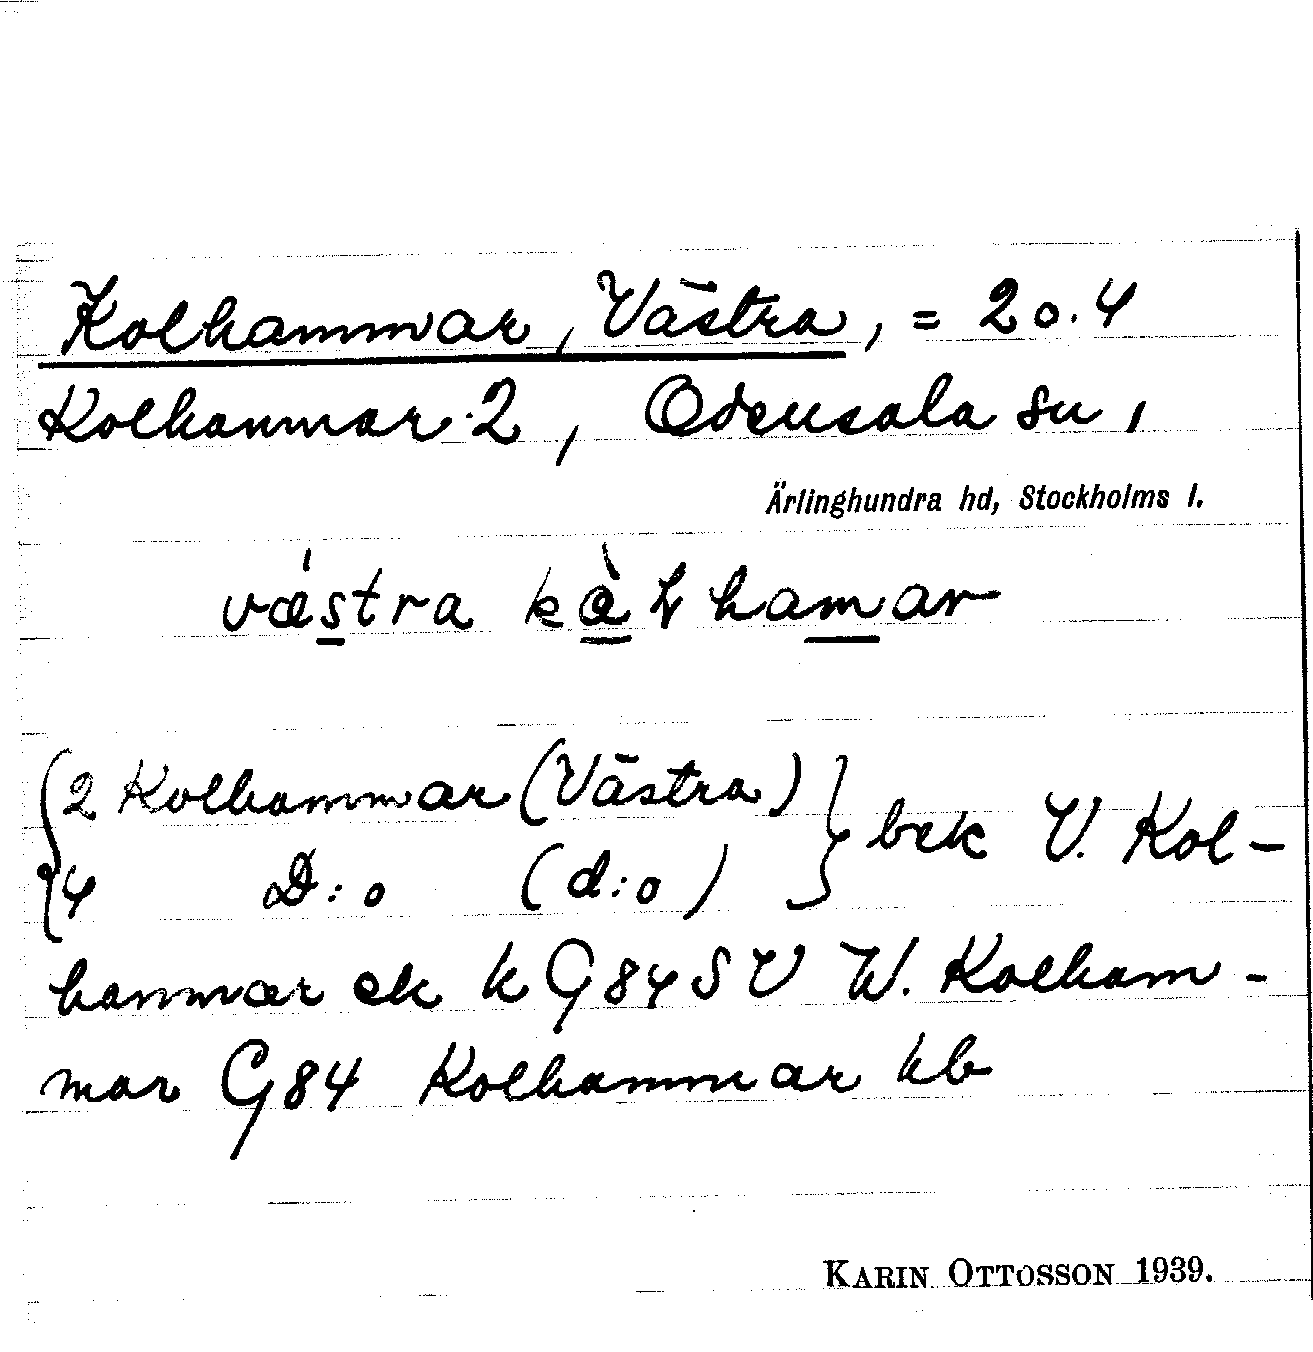 Kolhammar, Västra, = 2 o. 4
Kolhammar 2, Odensala sn,
Ärlinghundra hd, Stockholms l.
væ´stra kɷ̀ɫhamar
{2 Kolhammar (Västra)} bek V. Kol-
{4 D:o (d:o)}
hammar ek k G84SV W. Kolham-
mar G84 Kolhammar hb
KARIN OTTOSSON 1939.